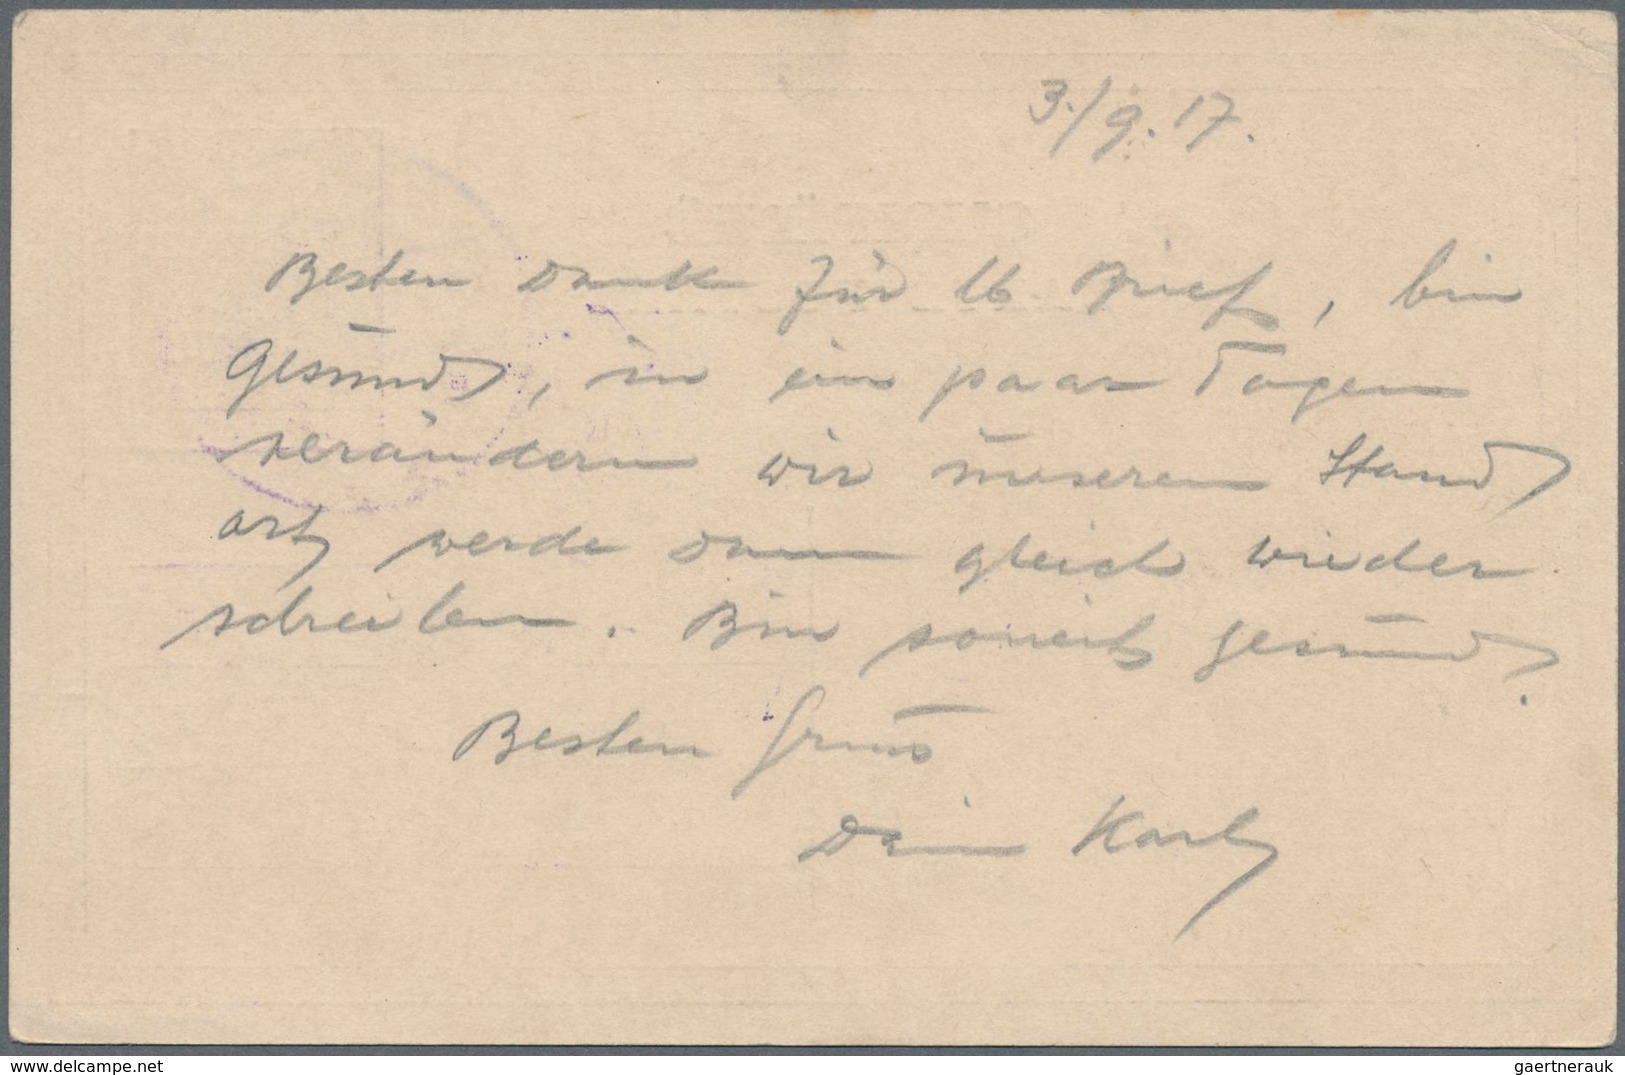 3./9. 17.
Besten Dank für lb Brief, bin
gesund, in ein paar Tagen
verändern wir unseren Stand
ort, werde dann gleich wieder
schreiben. Bin soweit gesund.
Besten Gruss
Dein Karl
gaertnerauk